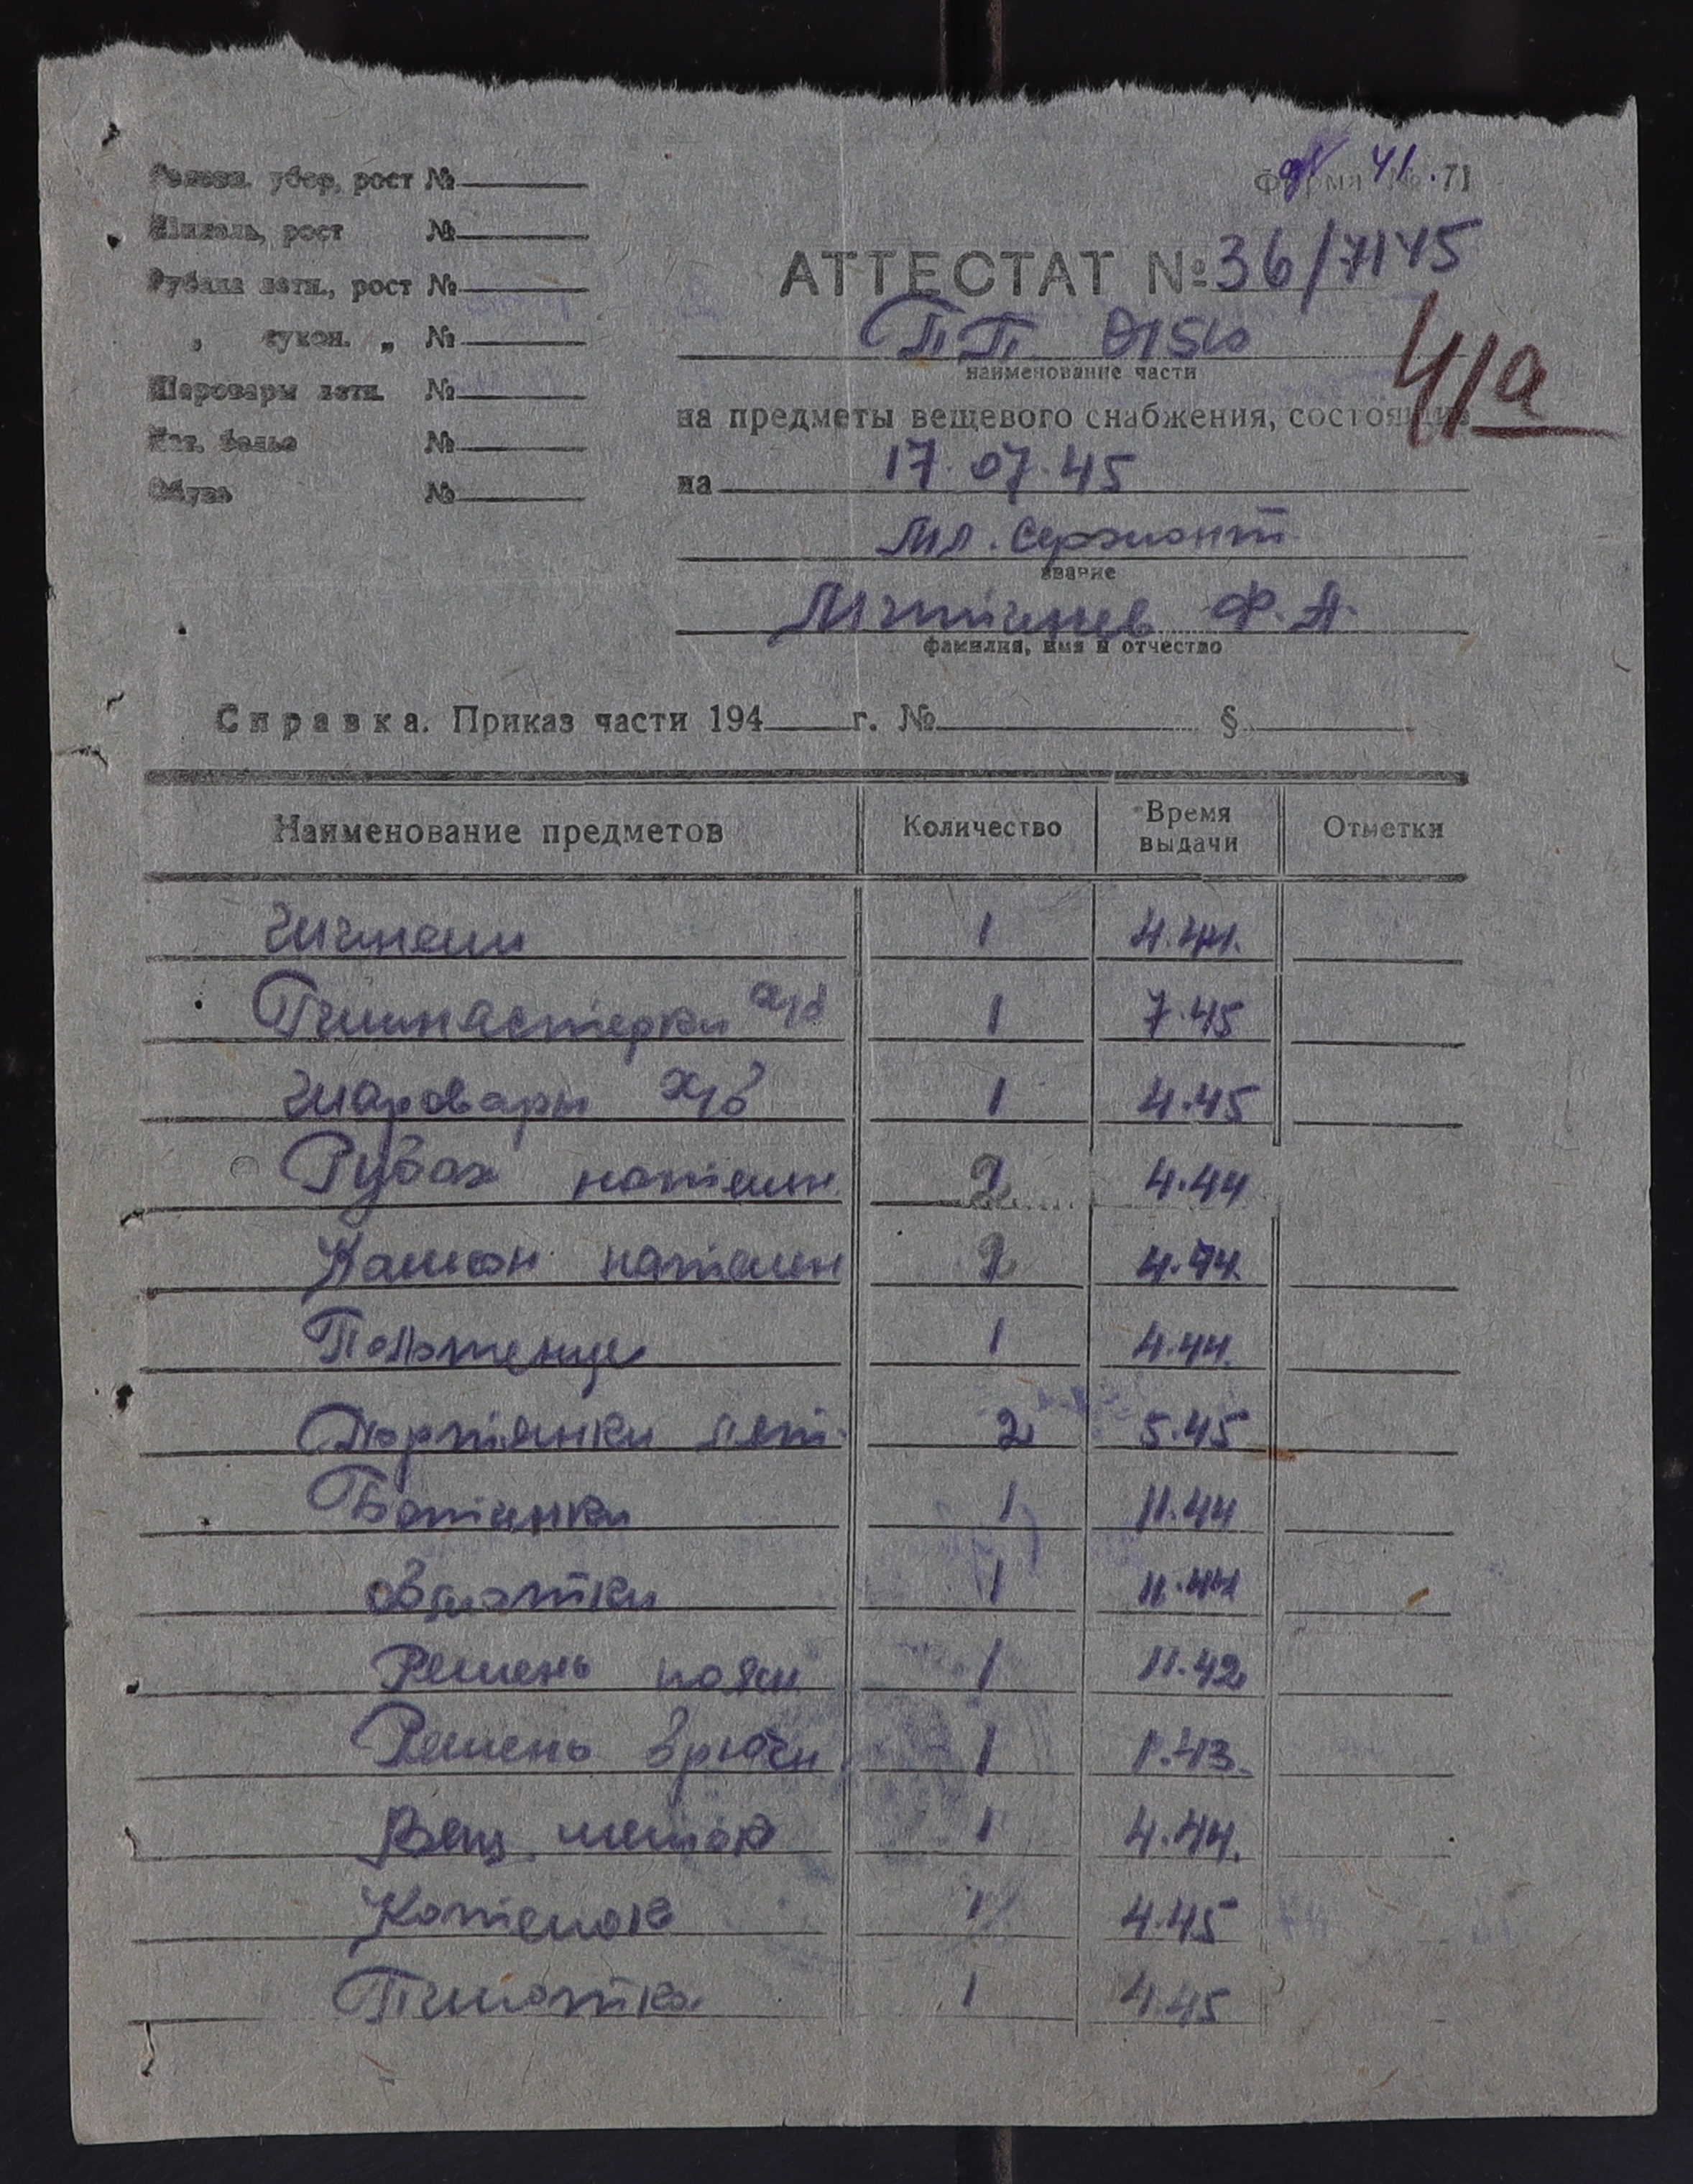 Головн. убор, рост №
Шинель, рост №
Рубаха летн., рост №
" сукон. " №
Шаровары летн. №
Нат. белье №
Обувь №
Форма № 71
41
АТТЕСТАТ № 36/7145
ПП
наименование части
41а
на предметы вещевого снабжения, состоящие
на 17.07.45
Мл. Сержант
звание
Ф. А.
фамилия, имя и отчество
Справка. Приказ части 194 г. № §
Наименование предметов Количество Время выдачи Отметки
Шинели 1 4.44.
Гимнастерки х/б 1 7.45
Шаровары х/б 1 4.45
Рубах нательн 2 4.44
Кальсон нательн 2 4.44.
Полотенце 1 4.44.
Портянки лет. 2 5.45
Ботинки 1 11.44
обмотки 1 11.44
Ремень поясн 1 11.42
Ремень брючн 1 1.43.
Вещ. мешок 1 4.44.
Котелок 1 4.45
Пилотка 1 4.45